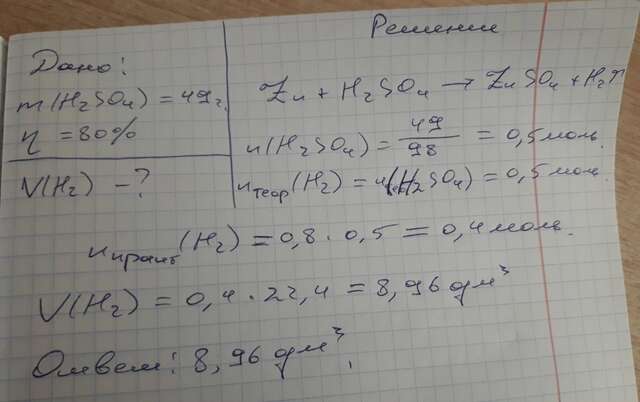 Дано:
m(H₂SO₄) = 49г.
η = 80%
V(H₂) – ?
Решение
Zn + H₂SO₄ → ZnSO₄ + H₂↑
n(H₂SO₄) = 49/98 = 0,5 моль.
nтеор(H₂) = n(H₂SO₄) = 0,5 моль.
nпракт(H₂) = 0,8 · 0,5 = 0,4 моль.
V(H₂) = 0,4 · 22,4 = 8,96 дм³
Ответ: 8,96 дм³.